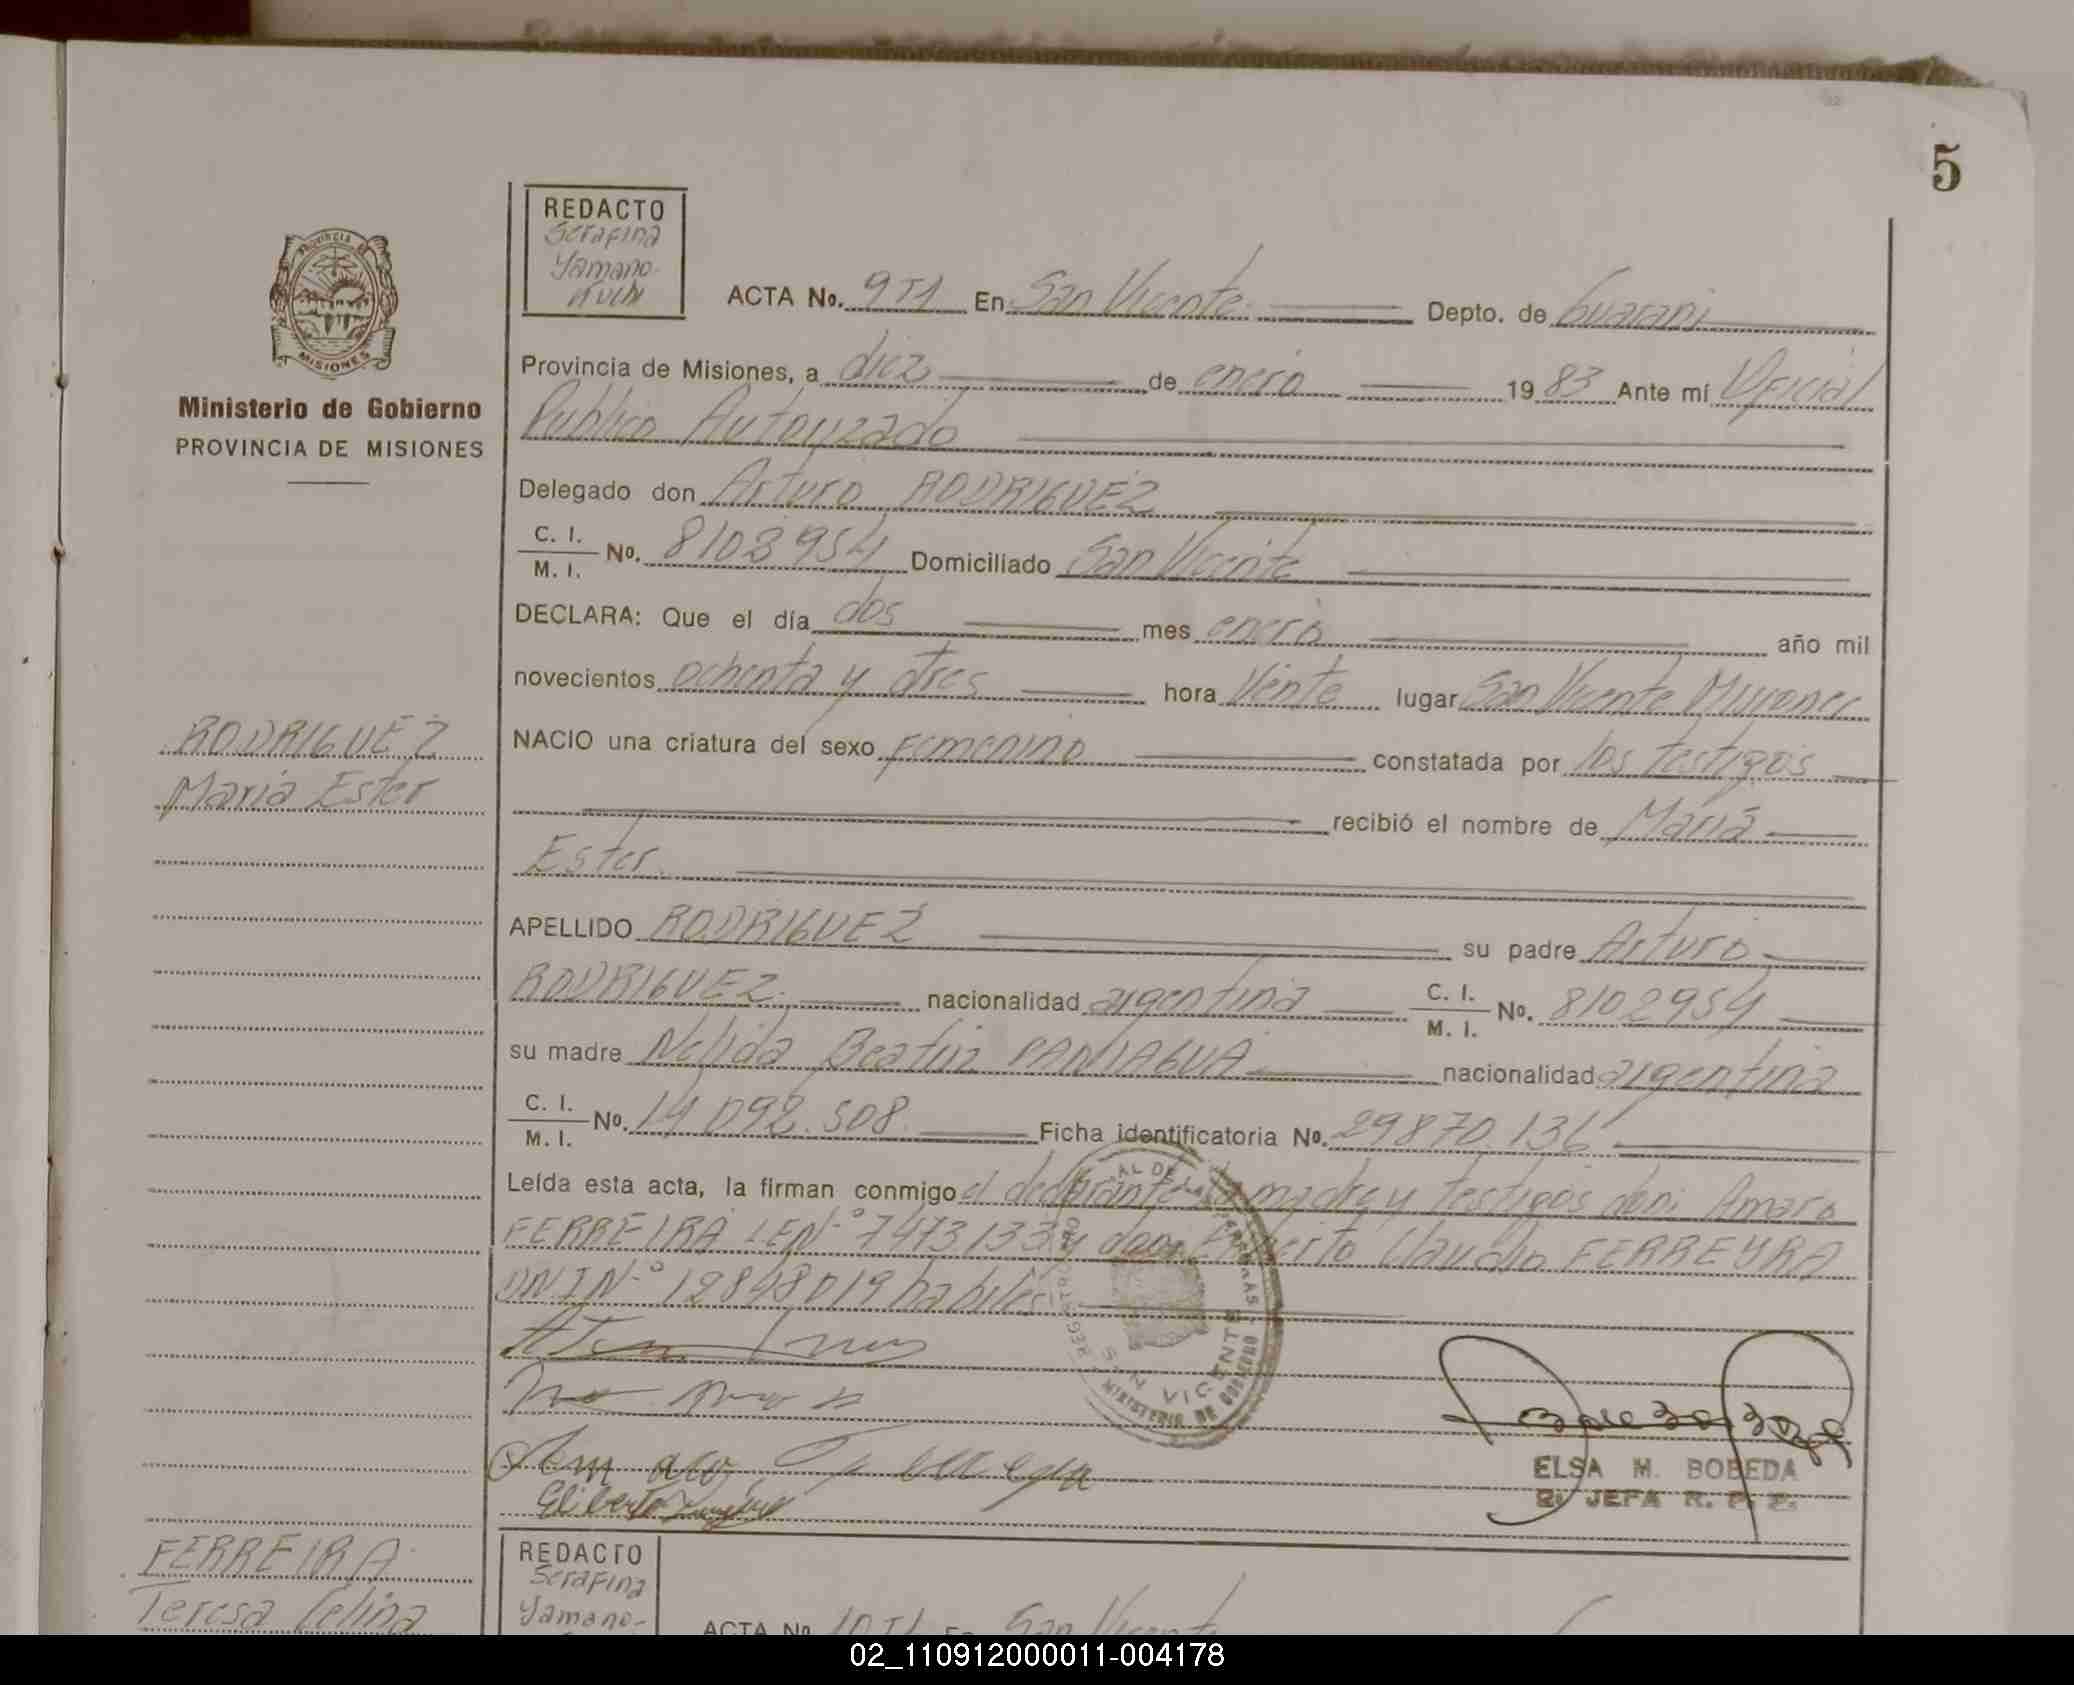 5
REDACTO
Serafina
Yamano-
PROVINCIA DE
MISIONES
Ministerio de Gobierno
PROVINCIA DE MISIONES
ACTA No. 9T1 En San Vicente Depto. de Guaraní
Provincia de Misiones, a diez de enero 1983 Ante mí Oficial
Publico Autorizado
Delegado don Arturo RODRIGUEZ
C. I. / M. I. No. 8103954 Domiciliado San Vicente
DECLARA: Que el día dos mes enero año mil
novecientos ochenta y tres hora Veinte lugar San Vicente Misiones
RODRIGUEZ
María Ester
NACIO una criatura del sexo femenino constatada por los testigos
recibió el nombre de María
Ester
APELLIDO RODRIGUEZ su padre Arturo
RODRIGUEZ nacionalidad argentina C. I. / M. I. No. 8102954
su madre Nelida Beatriz PANIAGUA nacionalidad argentina
C. I. / M. I. No. 14.092.508 Ficha identificatoria No. 29870.136
Leída esta acta, la firman conmigo el declarante la madre y testigos don: Amaro
FERREIRA LEN-° 7473133 y don Claudio FERREYRA
DNIN-° 12848019 habiles
SAN VICENTE
MINISTERIO DE GOBIERNO
ELSA M. BOBEDA
JEFA R. P. P.
FERREIRA
Teresa Celina
REDACTO
Serafina
Yamano-
ACTA No. 10T1 En San Vicente
02_110912000011-004178